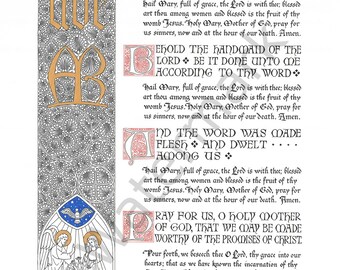 Ave
hail Mary, full of grace, the Lord is with thee; blessed
art thou among women and blessed is the fruit of thy
womb Jesus. Holy Mary, Mother of God, pray for
us sinners, now and at the hour of our death. Amen.
BEHOLD THE HANDMAID OF
THE LORD BE IT DONE UNTO ME
ACCORDING TO THY WORD
hail Mary, full of grace, the Lord is with thee; blessed
art thou among women, and blessed is the fruit of thy
womb Jesus. Holy Mary, Mother of God, pray for
us sinners, now and at the hour of our death. Amen.
AND THE WORD WAS MADE
FLESH AND DWELT . . . .
AMONG US
hail Mary, full of grace, the Lord is with thee; blessed
art thou among women and blessed is the fruit of thy
womb Jesus. Holy Mary, Mother of God, pray for
us sinners, now and at the hour of our death. Amen.
PRAY FOR US, O HOLY MOTHER
OF GOD, THAT WE MAY BE MADE
WORTHY OF THE PROMISES OF CHRIST
Pour forth, we beseech thee O Lord, thy grace into our
hearts; that as we have known the incarnation of thy